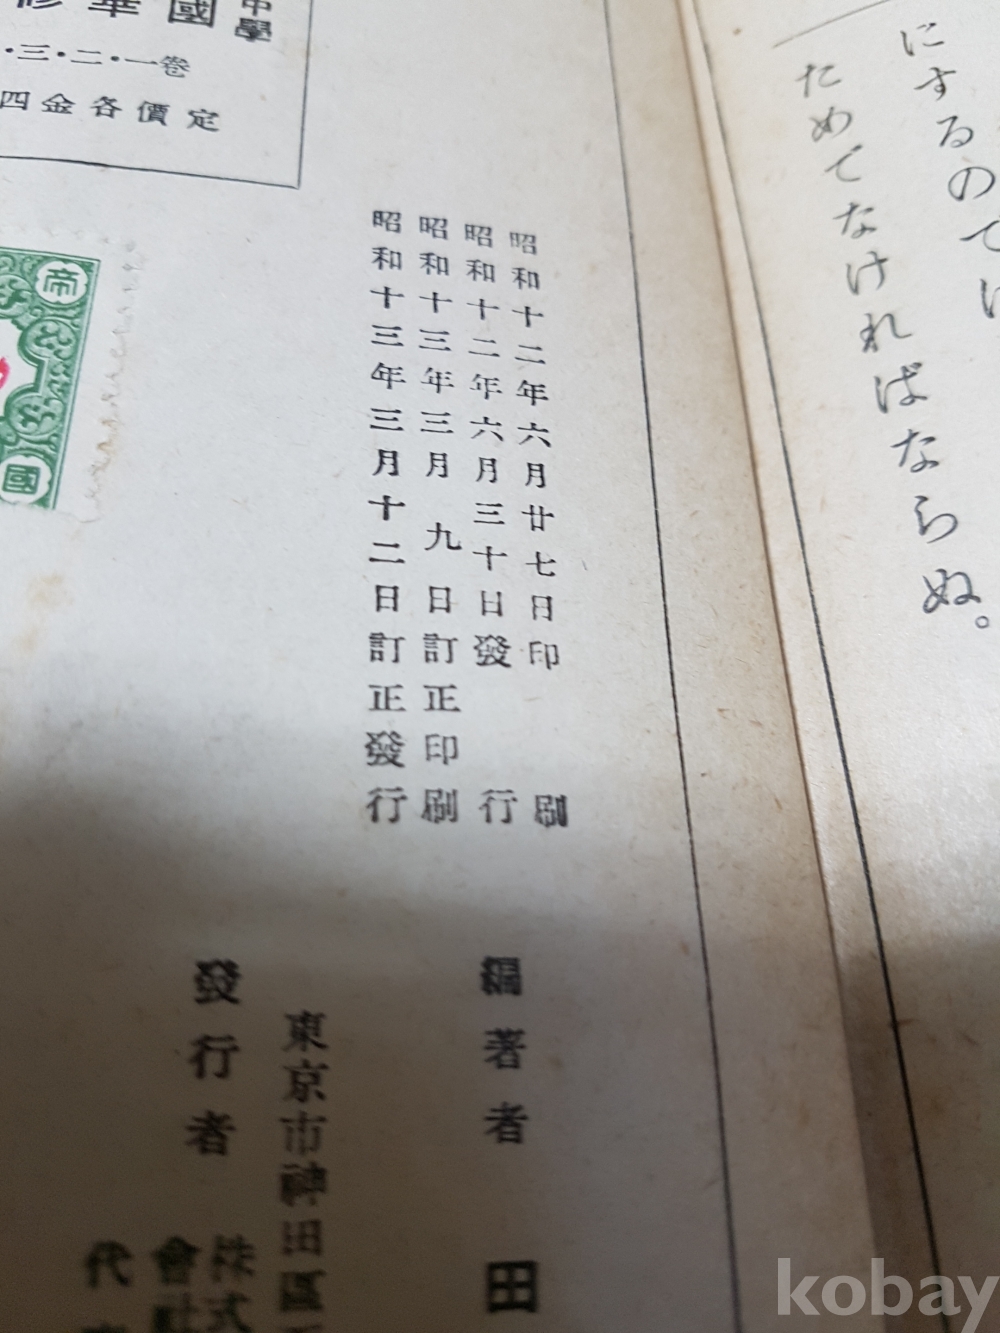 にするのでは
ためでなければならぬ。
昭和十二年六月廿七日印刷
昭和十二年六月三十日發行
昭和十三年三月九日訂正印刷
昭和十三年三月十二日訂正發行
中學
國華
卷一・二・三・
定價各金四
帝
國
編著者 田
東京市神田區
發行者
株式
會社
代
kobay